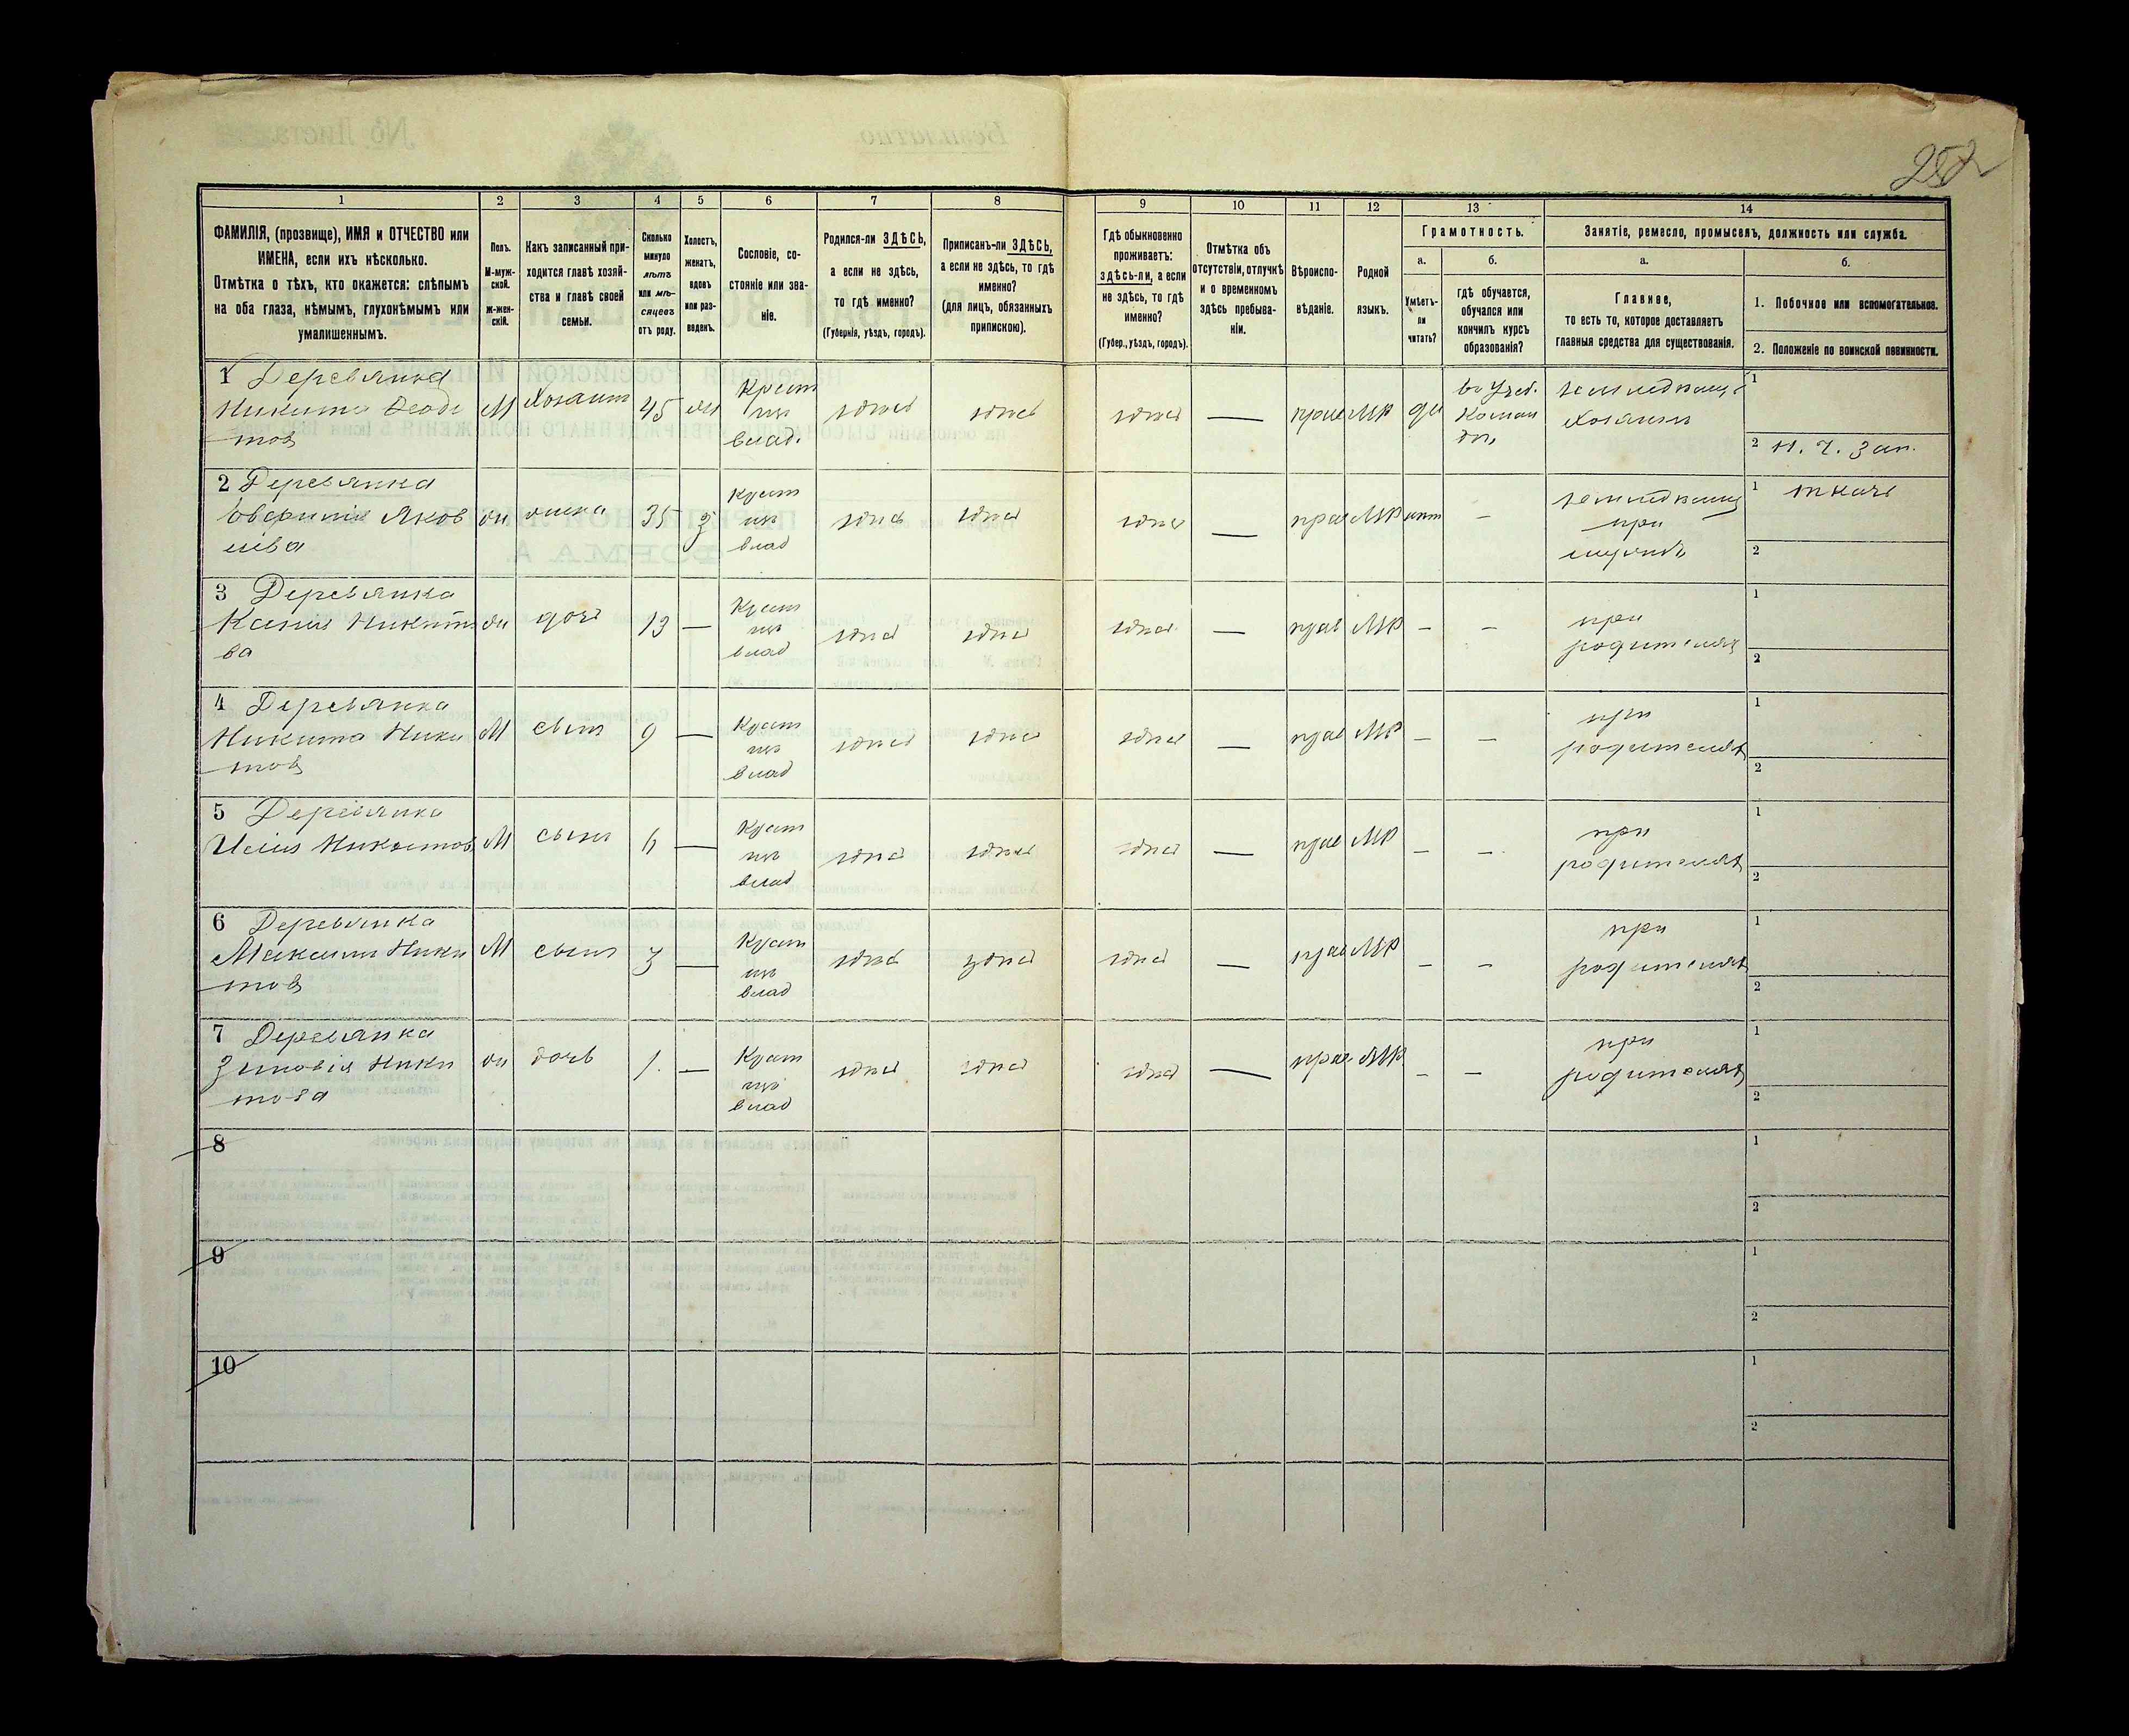 252
1 2 3 4 5 6 7 8 9 10 11 12 13 14
ФАМИЛІЯ, (прозвище), ИМЯ и ОТЧЕСТВО или
ИМЕНА, если ихъ нѣсколько.
Отмѣтка о тѣхъ, кто окажется: слѣпымъ
на оба глаза, нѣмымъ, глухонѣмымъ или
умалишеннымъ.
Полъ.
М-муж-
ской.
ж-жен-
скій.
Какъ записанный при-
ходится главѣ хозяй-
ства и главѣ своей
семьи.
Сколько
минуло
лѣтъ
или мѣ-
сяцевъ
отъ роду.
Холостъ,
женатъ,
вдовъ
или раз-
веденъ.
Сословіе, со-
стояніе или зва-
ніе.
Родился-ли ЗДѢСЬ,
а если не здѣсь,
то гдѣ именно?
(Губернія, уѣздъ, городъ).
Приписанъ-ли ЗДѢСЬ,
а если не здѣсь, то гдѣ
именно?
(для лицъ, обязанныхъ
припискою).
Гдѣ обыкновенно
проживаетъ:
здѣсь-ли, а если
не здѣсь, то гдѣ
именно?
(Губер., уѣздъ, городъ).
Отмѣтка объ
отсутствіи, отлучкѣ
и о временномъ
здѣсь пребыва-
ніи.
Вѣроиспо-
вѣданіе.
Родной
языкъ.
Грамотность.
а.
Умѣетъ-
ли
читать?
б.
гдѣ обучается,
обучался или
кончилъ курсъ
образованія?
Занятіе, ремесло, промыселъ, должность или служба.
а.
Главное,
то есть то, которое доставляетъ
главныя средства для существованія.
б.
1. Побочное или вспомогательное.
2. Положеніе по воинской повинности.
1 Деревянка
Никита Леон
тов
М Хозяинъ 45 Крест
изъ
влад.
здѣсь здѣсь здѣсь — прав МР да
Учеб.
Коман
дѣ
земледѣлецъ
Хозяинъ
1
2 н. ч. зап.
2 Деревянка
Яков
лева
ж жена 35 З Крест
изъ
влад
здѣсь здѣсь здѣсь — прав МР нет —
земледѣлецъ
при
мужѣ
1 ткачь
2
3 Деревянка
Ксенія Никито
ва
ж дочь 13 — Крест
изъ
влад
здѣсь здѣсь здѣсь — прав МР — —
при
родителях
1
2
4 Деревянка
Никита Ники
тов
М сынъ 9 — Крест
изъ
влад
здѣсь здѣсь здѣсь — прав МР — —
при
родителях
1
2
5 Деревянка
Илія Никитов
М сынъ 6 — Крест
изъ
влад
здѣсь здѣсь здѣсь — прав МР — —
при
родителях
1
2
6 Деревянка
Максим Ники
тов
М сынъ 3 — Крест
изъ
влад
здѣсь здѣсь здѣсь — прав МР — —
при
родителях
1
2
7 Деревянка
Зиновія Ники
това
ж дочь 1. — Крест
изъ
влад
здѣсь здѣсь здѣсь — прав МР — —
при
родителях
1
2
8
1
2
9
1
2
10
1
2